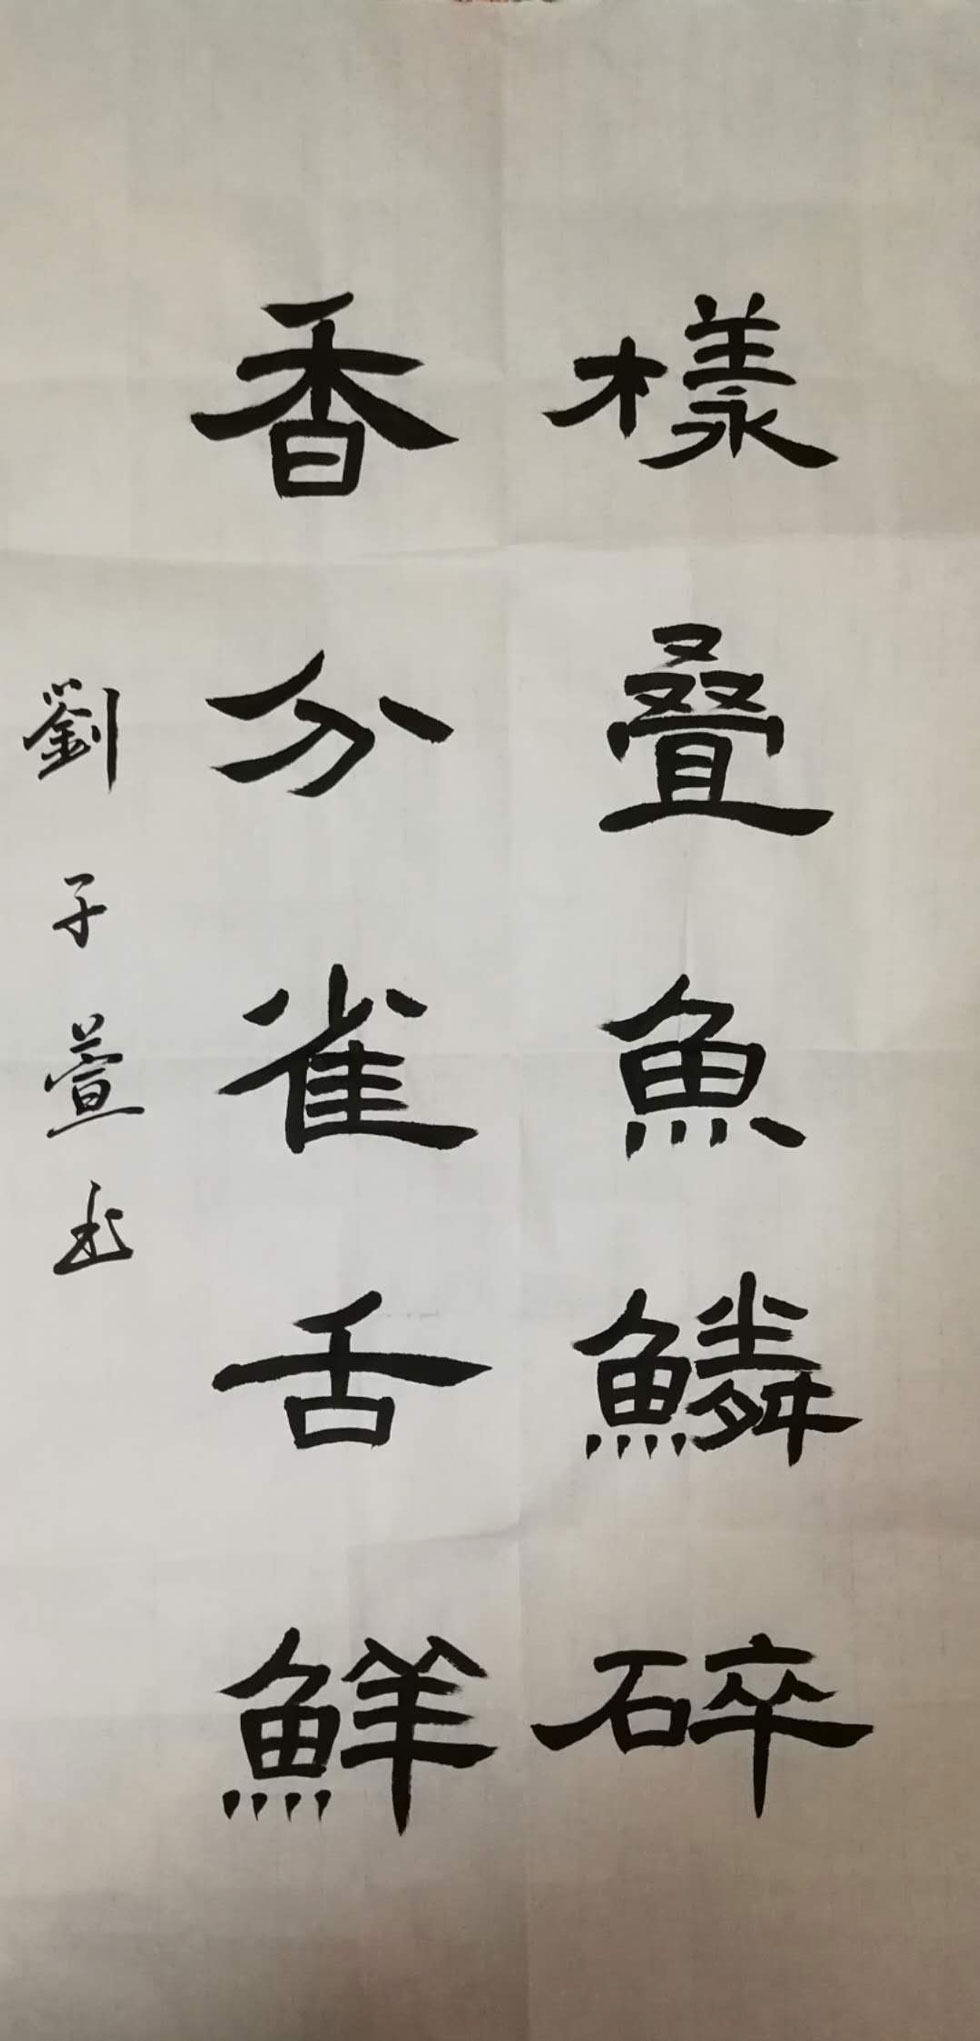 樣叠魚鱗碎
香分雀舌鮮
劉子萱書